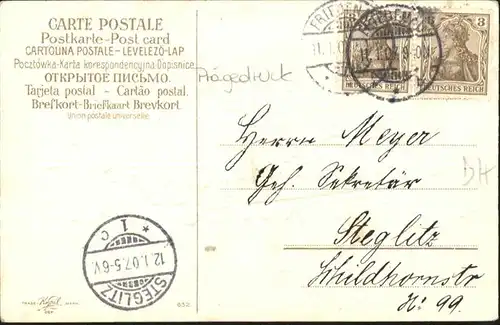 CARTE POSTALE
Postkarte-Post card
CARTOLINA POSTALE-LEVELEZŐ-LAP
Pocztówka-Karta korespondencyjna Dopisnice
ОТКРЫТОЕ ПИСЬМО.
Tarjeta postal - Cartão postal.
Brefkort-Briefkaart Brevkort.
Union postale universelle.
Prägedruck
3
DEUTSCHES REICH
DEUTSCHES REICH
Herrn Meyer
Geh. Sekretär
Steglitz
Schildhornstr
No: 99.
BH
* 1 c
12.1.07.5-6V.
STEGLITZ
632